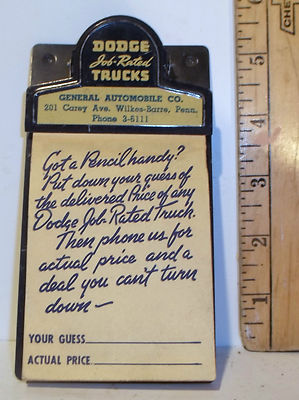 DODGE
Job-Rated
TRUCKS
GENERAL AUTOMOBILE CO.
201 Carey Ave. Wilkes-Barre, Penn.
Phone 3-6111
Got a Pencil handy?
Put down your guess of
the delivered Price of any
Dodge Job-Rated Truck.
Then phone us for
actual price and a
deal you can't turn
down—
YOUR GUESS
ACTUAL PRICE
2
3
4
5